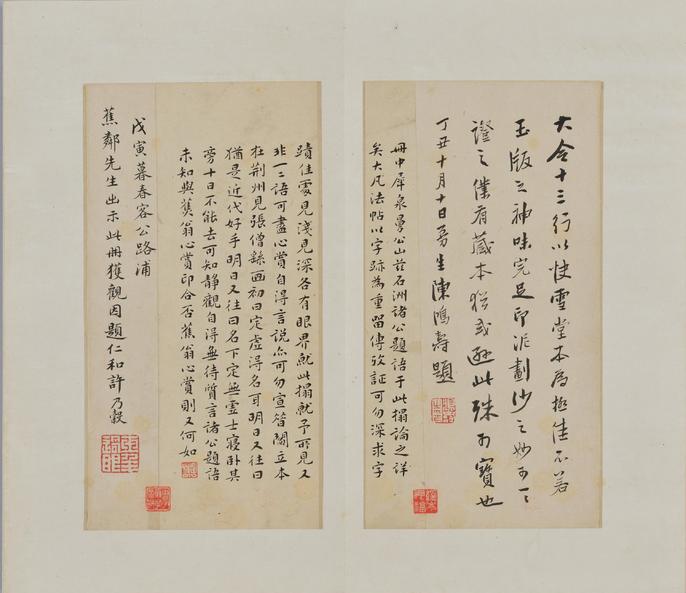 大令十三行以快雪堂本為極佳不若
玉版之神味完足印泥劃沙之妙可一一
證之僕有藏本猶或遜此殊可寶也
丁丑十月十日曼生陳鴻壽題
冊中犀泉曼公山茲石洲諸公題語于此搨論之詳
矣大凡法帖以字跡為重留傳攷証可勿深求字
蹟佳處見淺見深各有眼界就此搨就予所見又
非一二語可盡心賞自得言說亦可勿宣昔閻立本
在荊州見張僧繇画初曰定虛得名耳明日又往曰
猶是近代好手明日又往曰名下定無虛士寢卧其
旁十日不能去可知静觀自得無待質言諸公題語
未知與蕉翁心賞印合否蕉翁心賞則又何如
戊寅暮春客公路浦
蕉鄰先生出示此冊獲觀因題仁和許乃穀